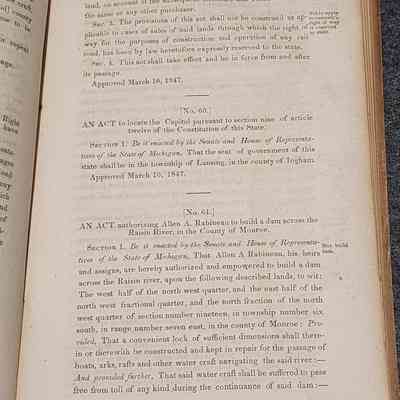 land, on account of the subsequent
the same or any other purchaser.
SEC. 3. The provisions of this act shall not be construed as ap-
plicable to cases of sales of said lands through which the right of
way for the purposes of construction and operation of any rail
road, has been by law heretofore expressly reserved to the state.
SEC. 4. This act shall take effect and be in force from and after
its passage.
Approved March 16, 1847.
[No. 60.]
AN ACT to locate the Capitol pursuant to section nine of article
twelve of the Constitution of this State.
SECTION 1. Be it enacted by the Senate and House of Representa-
tives of the State of Michigan, That the seat of government of this
state shall be in the township of Lansing, in the county of Ingham.
Approved March 16, 1847.
[No. 61.]
AN ACT authorizing Allen A. Rabineau to build a dam across the
Raisin River, in the County of Monroe.
SECTION 1. Be it enacted by the Senate and House of Representa-
tives of the State of Michigan, That Allen A Rabineau, his heirs
May build
dam.
and assigns, are hereby authorized and empowered to build a dam
across the Raisin river, upon the following described lands, to wit:
The west half of the north west quarter, and the east half of the
north west fractional quarter, and the north fraction of the north
west quarter of section number nineteen, in township number six
south, in range number seven east, in the county of Monroe: Pro-
vided, That a convenient lock of sufficient dimensions shall there-
in or therewith be constructed and kept in repair for the passage of
boats, arks, rafts and other water craft navigating the said river:—
And provided further, That said water craft shall be suffered to pass
free from toll of any kind during the continuance of said dam:—